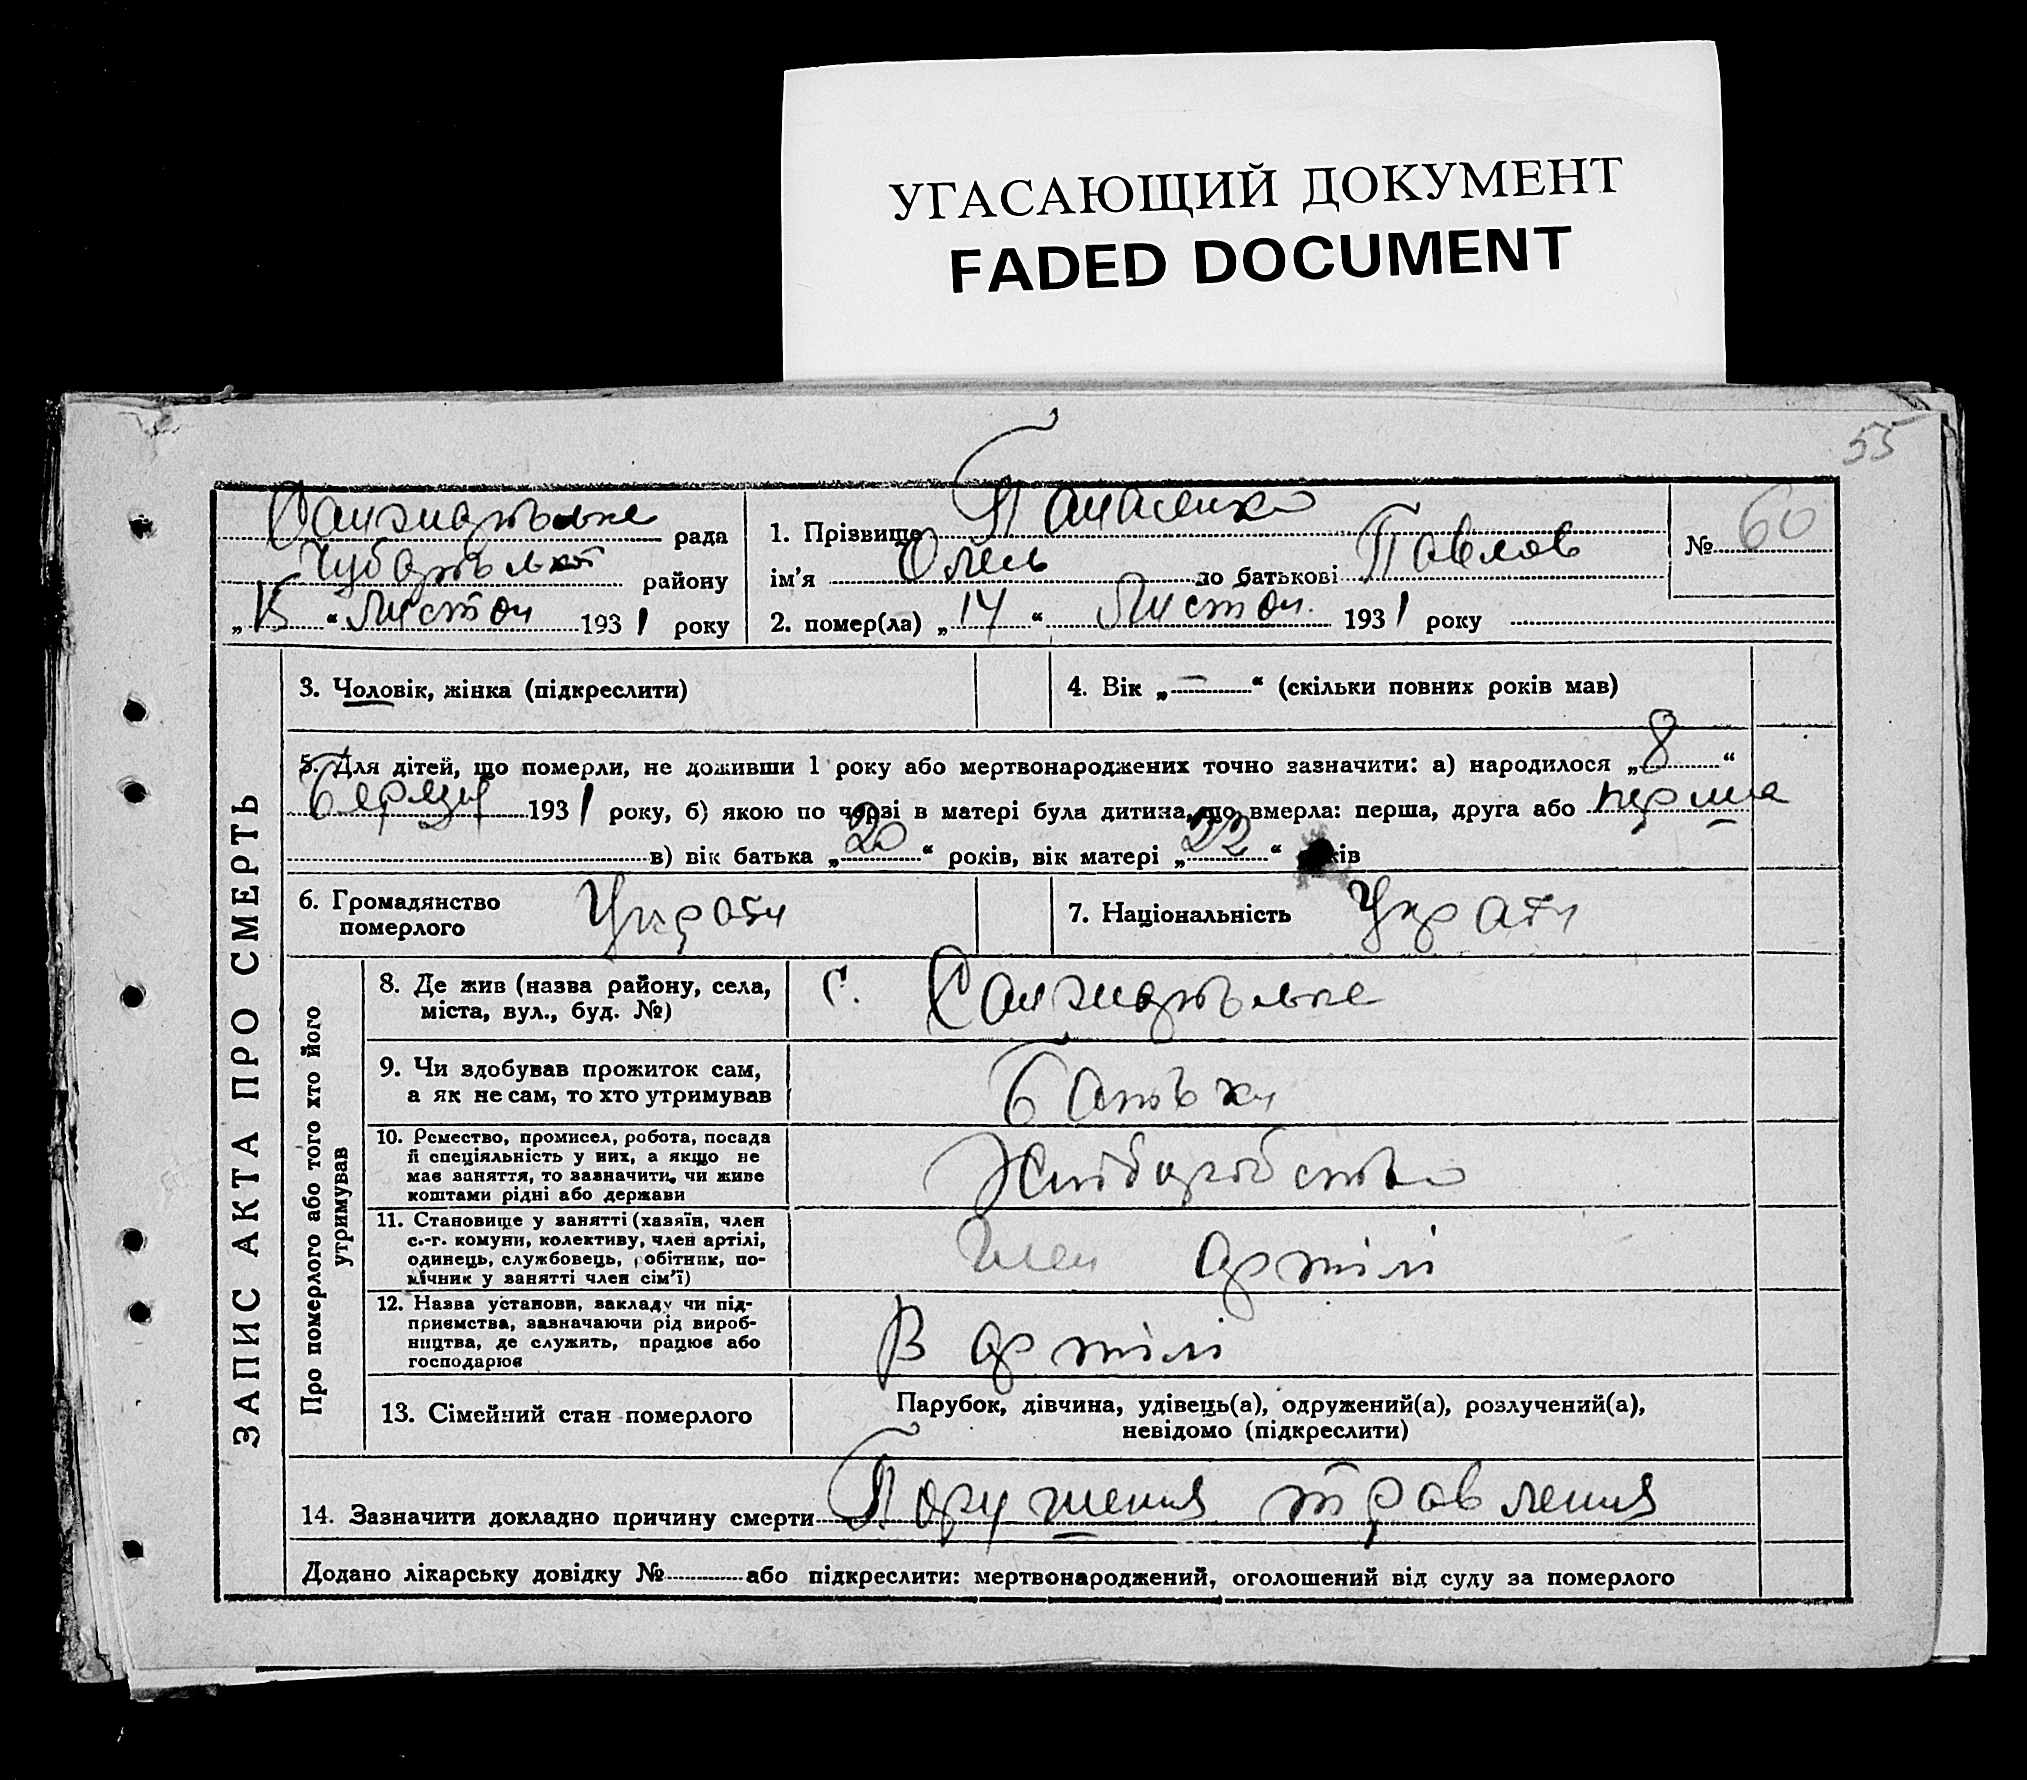 УГАСАЮЩИЙ ДОКУМЕНТ
FADED DOCUMENT
55
рада
району
„15“ Листоп 1931 року
1. Прізвище Панасенко
ім’я Олесь по батькові Павлов
2. помер(ла) „14“ Листоп. 1931 року
№ 60
ЗАПИС АКТА ПРО СМЕРТЬ
3. Чоловік, жінка (підкреслити)
4. Вік „—“ (скільки повних років мав)
5. Для дітей, що померли, не доживши 1 року або мертвонароджених точно зазначити: а) народилося „8“
Березня 1931 року, б) якою по черзі в матері була дитина, що вмерла: перша, друга або перша
в) вік батька „20“ років, вік матері „22“ років
6. Громадянство
померлого
7. Національність
Про померлого або того хто його
утримував
8. Де жив (назва району, села,
міста, вул., буд. №)
с.
9. Чи здобував прожиток сам,
а як не сам, то хто утримував
Батьки
10. Ремество, промисел, робота, посада
й спеціяльність у них, а якщо не
має заняття, то зазначити, чи живе
коштами рідні або держави
Хліборобство
11. Становище у занятті (хазяїн, член
с.-г. комуни, колективу, член артілі,
одинець, службовець, робітник, по-
мічник у занятті член сім’ї)
Член артілі
12. Назва установи, закладу чи під-
приємства, зазначаючи рід вироб-
ництва, де служить, працює або
господарює
В артілі
13. Сімейний стан померлого
Парубок, дівчина, удівець(а), одружений(а), розлучений(а),
невідомо (підкреслити)
14. Зазначити докладно причину смерти Порушения травления
Додано лікарську довідку № або підкреслити: мертвонароджений, оголошений від суду за померлого